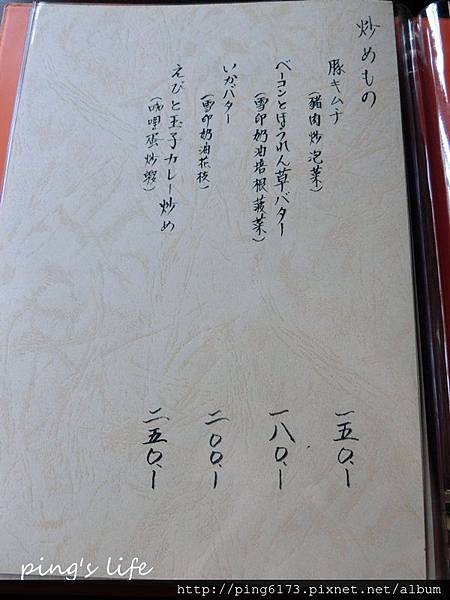 炒めもの
豚キムチ
(豬肉炒泡菜)
一五〇.-
ベーコンとほうれん草バター
(雪印奶油培根菠菜)
一八〇.-
いかバター
(雪印奶油花枝)
二〇〇.-
えびと玉子カレー炒め
(咖哩蛋炒蝦)
二五〇.-
ping's life
http://ping6173.pixnet.net/album